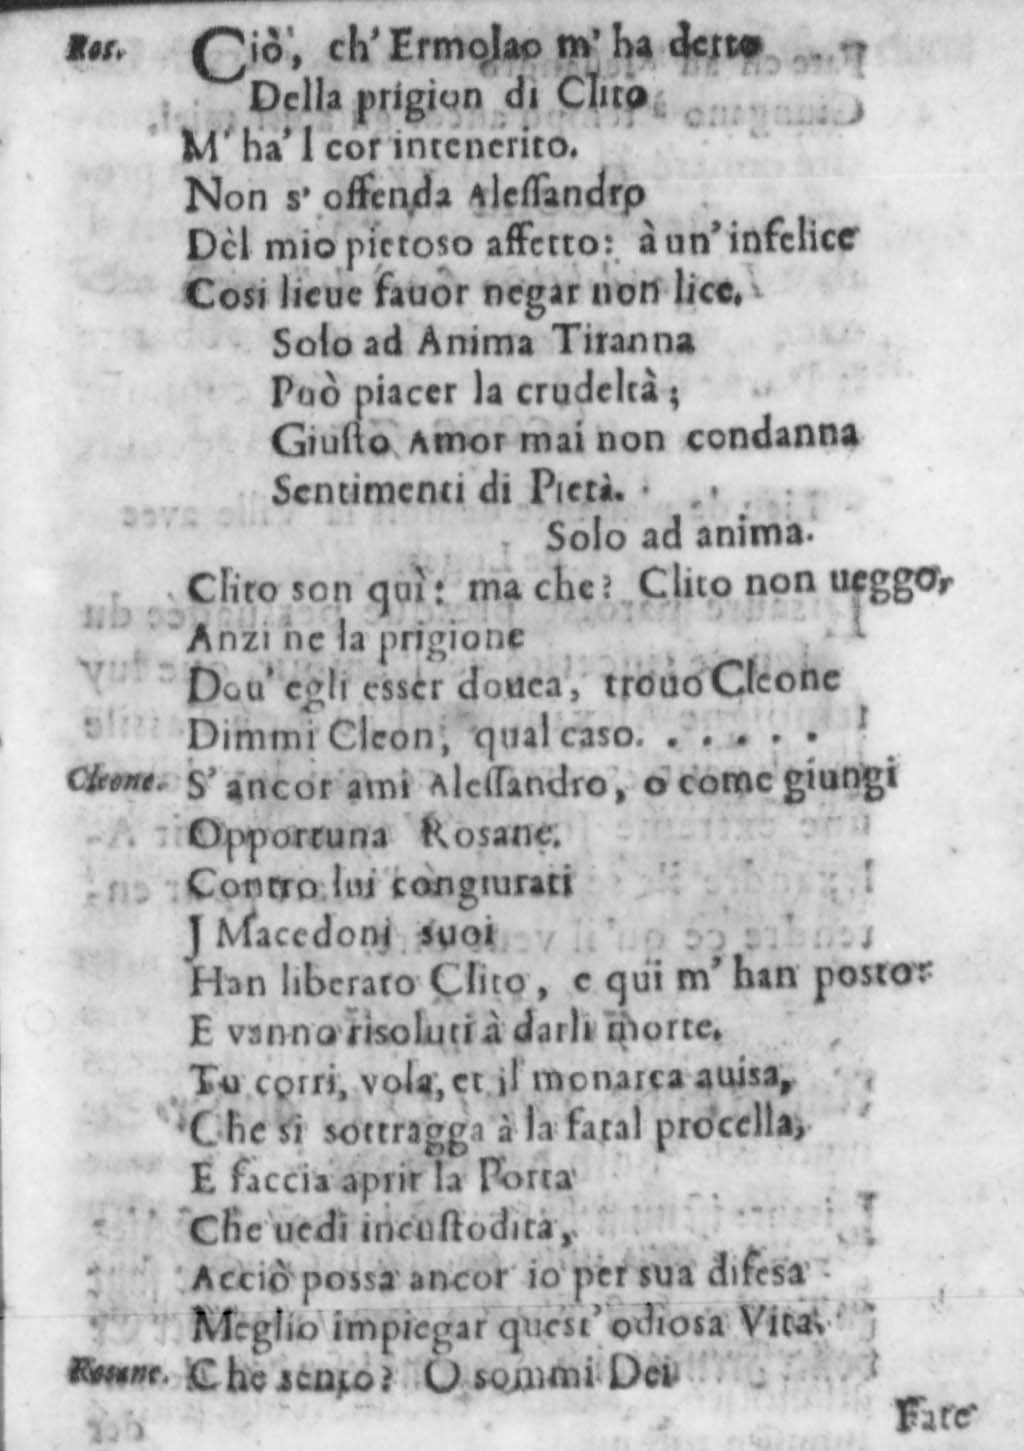 Ros. Ciò, ch' Ermolao m' ha detto
Della prigion di Clito
M' ha' l cor intenerito.
Non s' offenda Alessandro
Dèl mio pietoso affetto: à un' infelice
Cosi lieue fauor negar non lice.
Solo ad Anima Tiranna
Può piacer la crudeltà;
Giusto Amor mai non condanna
Sentimenti di Pietà.
Solo ad anima.
Clito son quì: ma che? Clito non ueggo,
Anzi ne la prigione
Dou' egli esser douea, trouo Cleone
Dimmi Cleon, qual caso. . . . . .
Cleone. S' ancor ami Alessandro, o come giungi
Opportuna Rosane.
Contro lui congiurati
J Macedoni suoi
Han liberato Clito, e qui m' han posto:
E vanno risoluti à darli morte.
Tu corri, vola, et il monarca auisa,
Che si sottragga à la fatal procella,
E faccia aprir la Porta
Che uedi incustodita,
Acciò possa ancor io per sua difesa
Meglio impiegar quest' odiosa Vita.
Rosane. Che sento? O sommi Dei
Fate